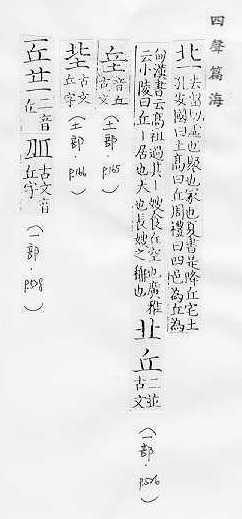 四聲篇海
去留切虛也聚也冢也夏書是降丘宅土
孔安國曰土高曰丘周禮曰四邑為丘為
甸漢書云高祖過其丨丨嫂食在空也廣雅
云小陵曰丘丨居也大也長嫂之稱也
㐀 丘 二並古文
(一部.p.526)
音丘古文
(土部.p.165)
古文丘字
(土部.p.166)
二音
古文音丘字
(一部.p.528)